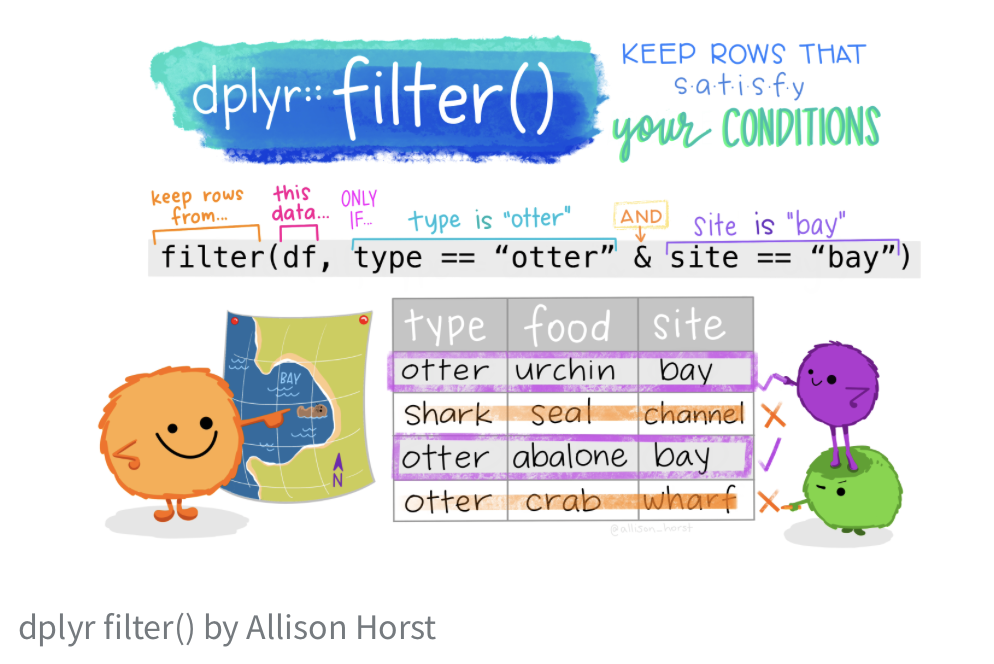 dplyr:: filter()
KEEP ROWS THAT
s·a·t·i·s·f·y
your CONDITIONS
keep rows
from...
this
data...
ONLY
IF...
type is "otter"
AND
site is "bay"
filter(df, type == “otter” & site == “bay”)
type food site
otter urchin bay
shark seal channel
otter abalone bay
otter crab wharf
BAY
N
@allison_horst
dplyr filter() by Allison Horst